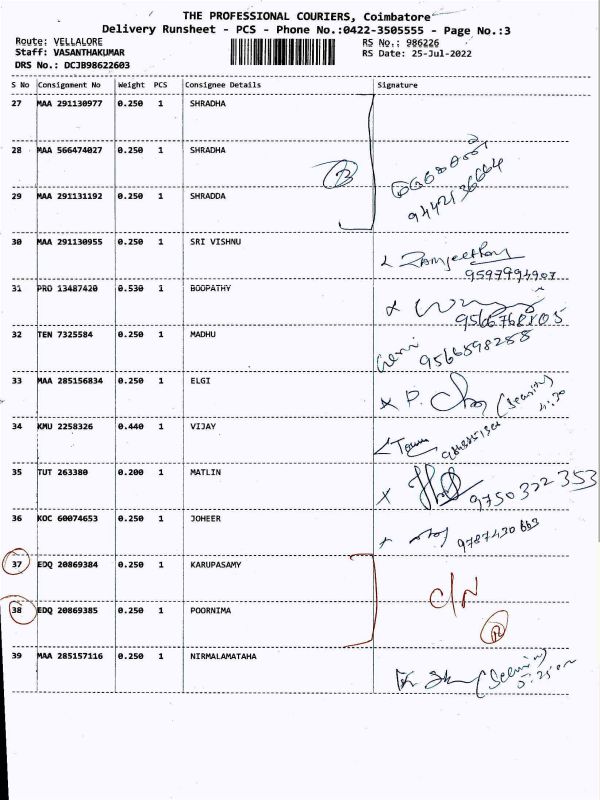 THE PROFESSIONAL COURIERS, Coimbatore
Delivery Runsheet - PCS - Phone No.:0422-3505555 - Page No.:3
Route: VELLALORE RS No.: 986226
Staff: VASANTHAKUMAR RS Date: 25-Jul-2022
DRS No.: DCJB98622603
S No Consignment No Weight PCS Consignee Details Signature
27 MAA 291130977 0.250 1 SHRADHA
28 MAA 566474027 0.250 1 SHRADHA
29 MAA 291131192 0.250 1 SHRADDA
30 MAA 291130955 0.250 1 SRI VISHNU
9597994907
31 PRO 13487420 0.530 1 BOOPATHY
32 TEN 7325584 0.250 1 MADHU
9566598258
33 MAA 285156834 0.250 1 ELGI
34 KMU 2258326 0.440 1 VIJAY
35 TUT 263380 0.200 1 MATLIN
9750322353
36 KOC 60074653 0.250 1 JOHEER
9787430663
37 EDQ 20869384 0.250 1 KARUPASAMY
38 EDQ 20869385 0.250 1 POORNIMA
C/N
39 MAA 285157116 0.250 1 NIRMALAMATAHA